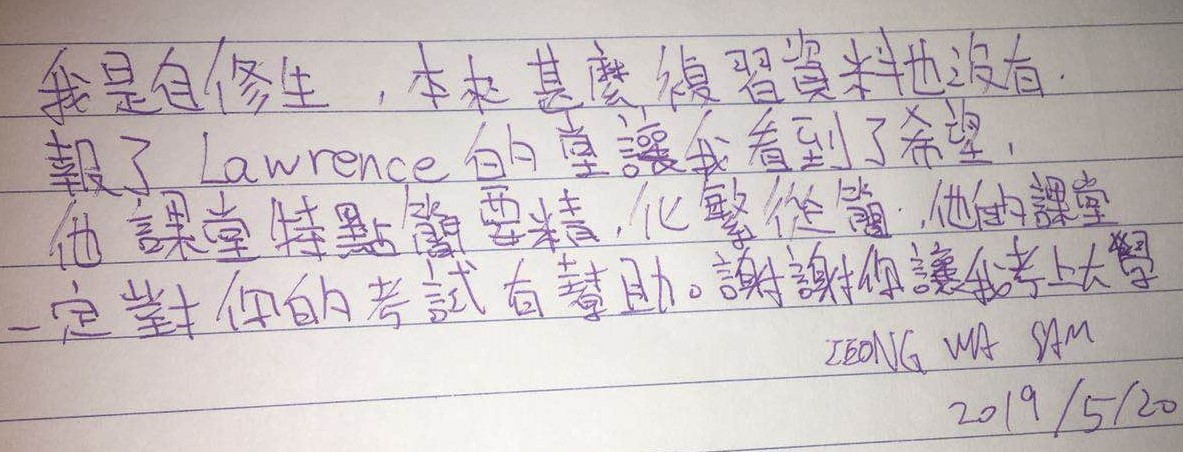 我是自修生，本來甚麼復習資料也沒有.
報了 Lawrence 的堂讓我看到了希望,
他課堂特點簡要精,化繁從簡.他的課堂
一定對你的考試有幫助。謝謝你讓我考上大學
IEONG WA SAM
2019/5/20